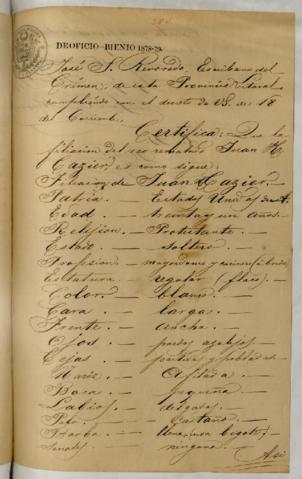 DEOFICIO-BIENIO 1878-79.
José S. Escribano del
Crímen, de esta Provincia Litoral
cumpliendo con el decreto de 18
del Corriente,
Certifica: Que la
filiacion del reo rematado Juan H.
Cazier, es como sigue:
Filiacion de Juan Cazier.
Patria. — Estados Unidos
Edad — treinta y un años.
Religion. — Protestante.
Estado. — Soltero.
Profesion — mayordomo y
Estatura — regular (flaco).
Color. — blanco.
Cara — larga.
Frente. — ancha.
Ojos — pardos azulejos
Cejas. — partidas y pobladas.
Nariz. — Afilada.
Boca. — pequeña
Labios. — delgados.
Pelo. — Castaño.
Barba. — bigote;
Señales. — ninguna.
Asi